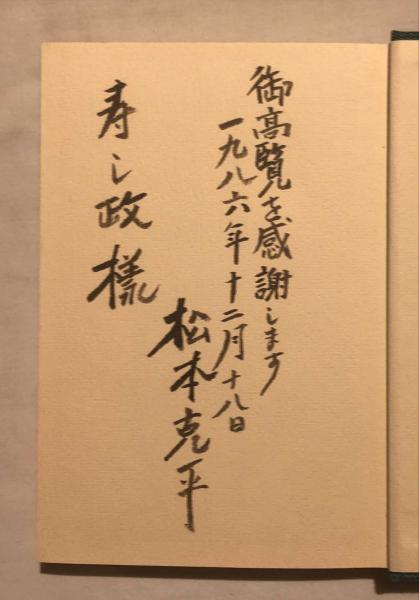 御高覧を感謝します
一九八六年十二月十八日
松本克平
寿し政様